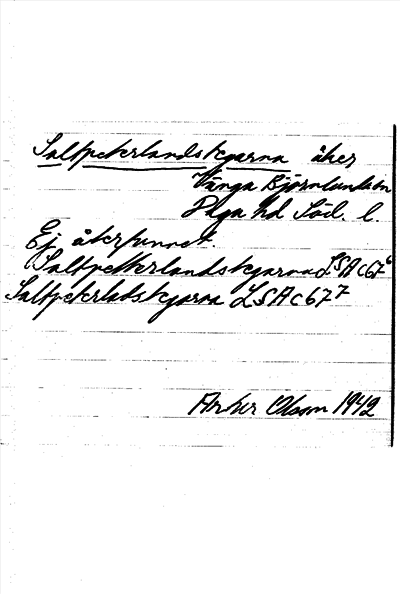 Saltpeterlandstegarna åker
Vänga Björnlunda sn
Daga hd Söd. l.
Ej återfunnet.
Saltpetterlandstegarna LSA c 67⁶
Saltpeterladstegarna LSA c 67⁷
Olsson 1942